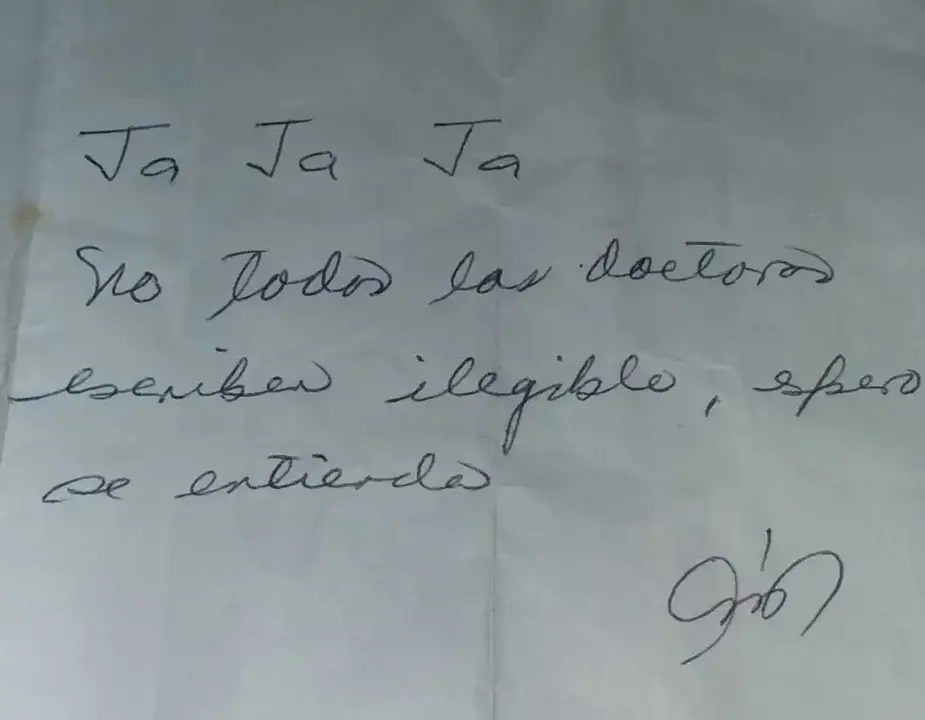 Ja Ja Ja
No todos los doctores
escriben ilegible, espero
se entienda